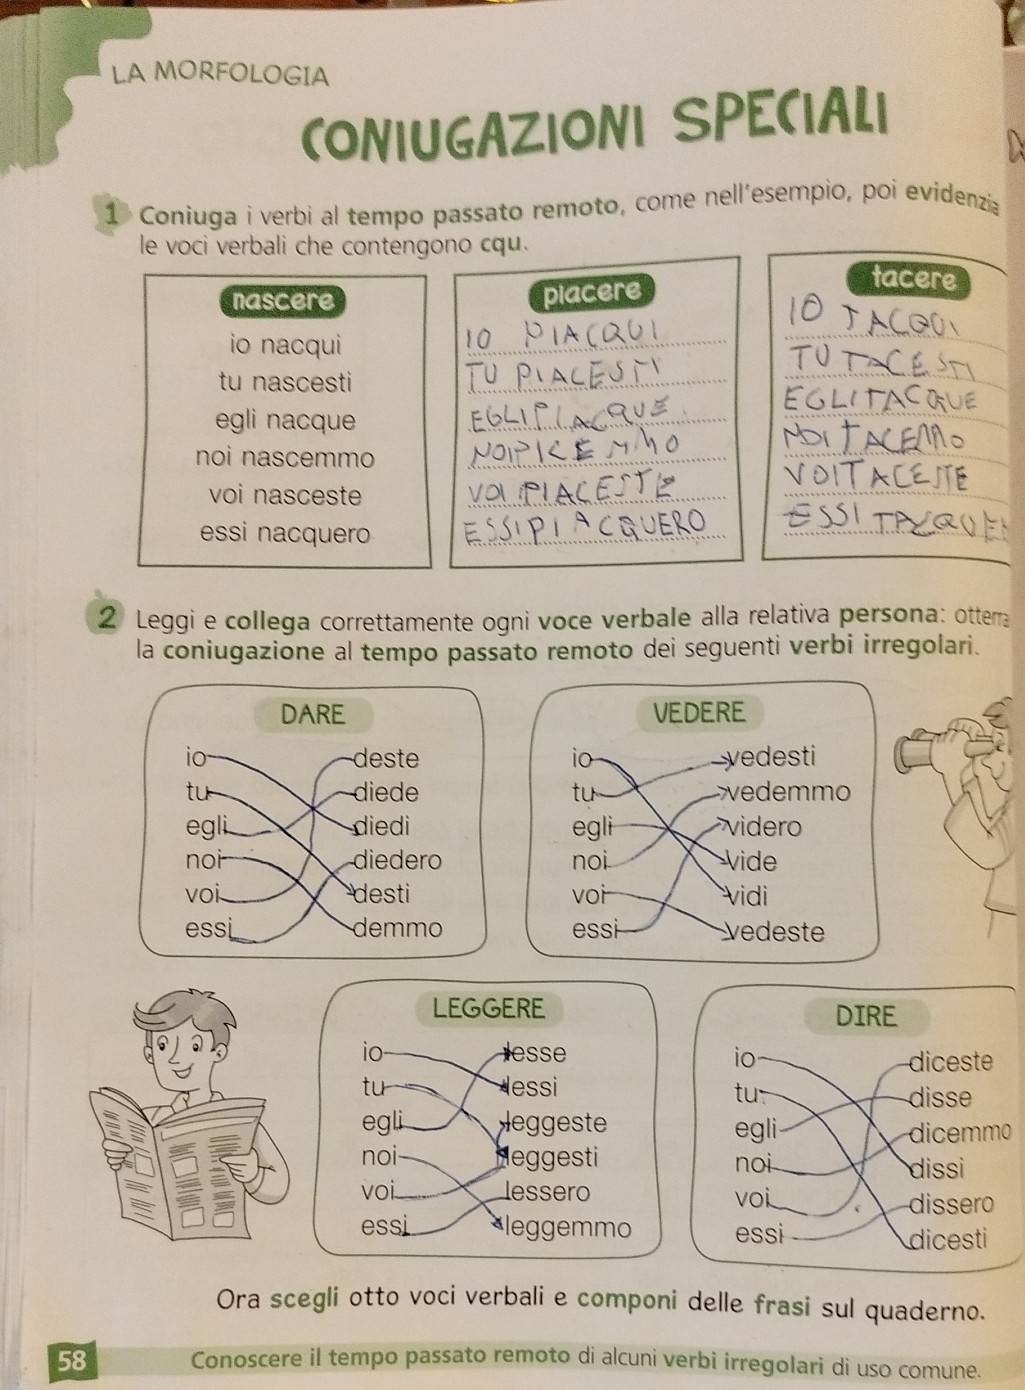 LA MORFOLOGIA
CONIUGAZIONI SPECIALI
1 Coniuga i verbi al tempo passato remoto, come nell'esempio, poi evidenzia
le voci verbali che contengono cqu.
nascere
io nacqui
tu nascesti
egli nacque
noi nascemmo
voi nasceste
essi nacquero
piacere
IO PIACQUI
TU PIACESTI
EGLI PIACQUE
NOI PICEMMO
VOI PIACESTE
ESSI PIACQUERO
tacere
IO TACQUI
TU TACESTI
EGLI TACQUE
NOI TACEMMO
VOI TACESTE
ESSI TACQUE
2 Leggi e collega correttamente ogni voce verbale alla relativa persona: otterra
la coniugazione al tempo passato remoto dei seguenti verbi irregolari.
DARE
io deste
tu diede
egli diedi
noi diedero
voi desti
essi demmo
VEDERE
io vedesti
tu vedemmo
egli videro
noi vide
voi vidi
essi vedeste
LEGGERE
io lesse
tu lessi
egli leggeste
noi leggesti
voi lessero
essi leggemmo
DIRE
io diceste
tu disse
egli dicemmo
noi dissi
voi dissero
essi dicesti
Ora scegli otto voci verbali e componi delle frasi sul quaderno.
58 Conoscere il tempo passato remoto di alcuni verbi irregolari di uso comune.